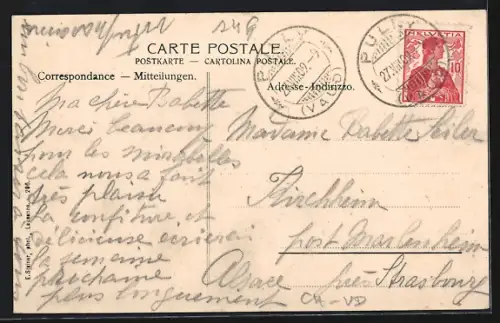 249
CARTE POSTALE.
POSTKARTE - CARTOLINA POSTALE.
Correspondance - Mitteilungen.
Adresse-Indirizzo.
PULLY
(VAUD)
PULLY
HELVETIA
10
Ma chère Babette
Merci beaucoup
pour les mirabelles
cela nous a fait
très plaisir
la confiture est
délicieuse écrirai
la semaine
prochaine
plus longuement
Madame Babette Seiler
Kirchheim
post Marlenheim
près Strasbourg
Alsace
CH-VD